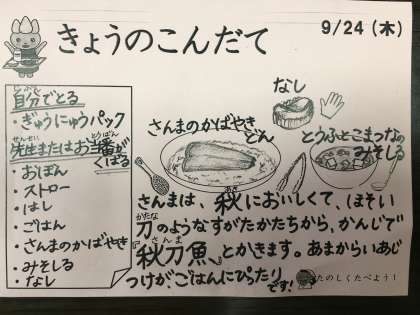 きょうのこんだて
9/24(木)
自分でとる
・ぎゅうにゅうパック
先生またはお当番が
くばる
・おぼん
・ストロー
・はし
・ごはん
・さんまのかばやき
・みそしる
・なし
なし
さんまのかばやき
どん
とうふとこまつなの
みそしる
さんまは、秋においしくて、ほそい
刀のようなすがたかたちから、かんじで
『秋刀魚』とかきます。あまからいあじ
つけがごはんにぴったり
です!
たのしくたべよう!